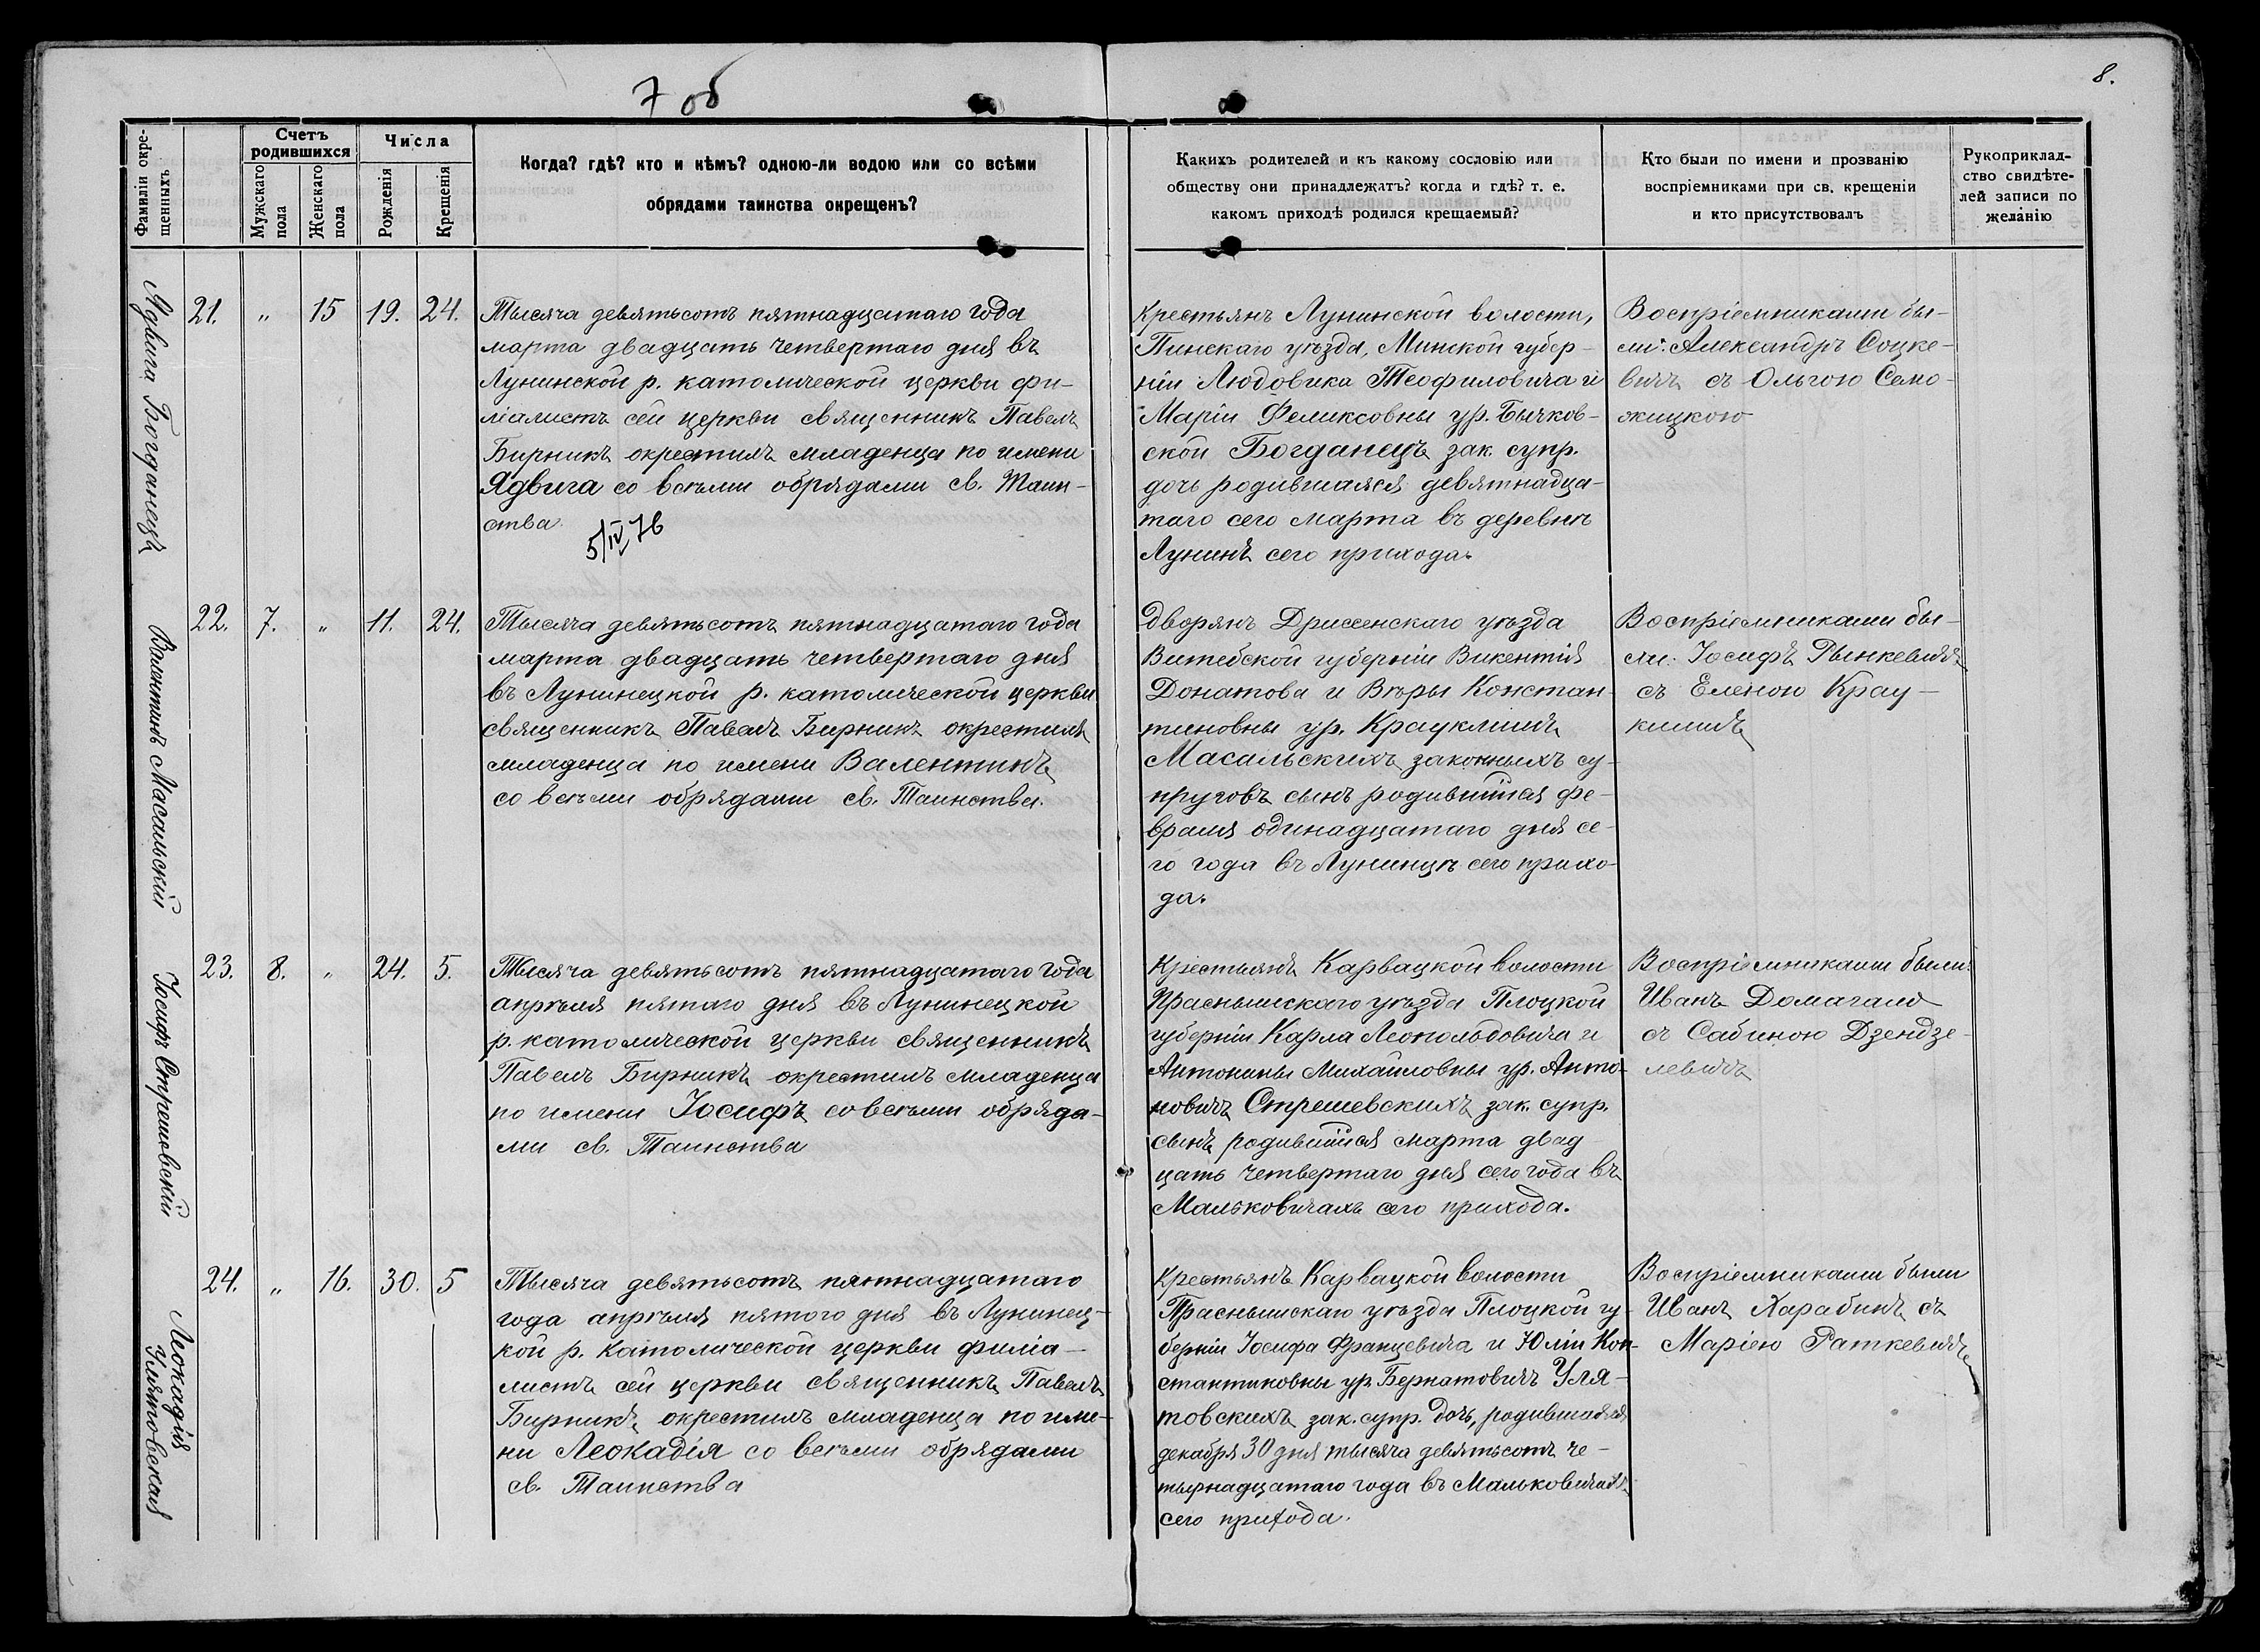 7 об
8.
Фамиліи окре-
щенныхъ
Счетъ
родившихся
Мужскаго
пола
Женскаго
пола
Числа
Рожденія
Крещенія
Когда? гдѣ? кто и кѣмъ? одною-ли водою или со всѣми
обрядами таинства окрещенъ?
Какихъ родителей и къ какому сословію или
обществу они принадлежатъ? когда и гдѣ? т. е.
какомъ приходѣ родился крещаемый?
Кто были по имени и прозванію
воспріемниками при св. крещеніи
и кто присутствовалъ
Рукоприклад-
ство свидѣте-
лей записи по
желанію
Ядвига Богданецъ
21. " 15 19. 24.
Тысяча девятьсотъ пятнадцатаго года
марта двадцать четвертаго дня въ
Лунинской р. католической церкви фи-
ліалистъ сей церкви священникъ Павелъ
Бирникъ окрестилъ младенца по имени
Ядвига со всѣми обрядами св. Таин-
ства.
5/IV 76
Крестьянъ Лунинской волости,
Пинскаго уѣзда, Минской губер-
ніи Людовика Теофиловича и
Маріи Феликсовны ур. Бычков-
ской Богданецъ зак. супр.
дочь родившаяся девятнадца-
таго сего марта въ деревнѣ
Лунинѣ сего прихода.
Воспріемниками бы-
ли: Александръ Соцке-
вичъ съ Ольгою Само-
жицкою
Валентинъ Масальскій
22. 7. " 11. 24.
Тысяча девятьсотъ пятнадцатаго года
марта двадцать четвертаго дня
въ Лунинецкой р. католической церкви
священникъ Павелъ Бирникъ окрестилъ
младенца по имени Валентинъ
со всѣми обрядами св. Таинства.
Дворянъ Дриссенскаго уѣзда
Витебской губерніи Викентія
Донатова и Вѣры Констан-
тиновны ур. Крауклишъ
Масальскихъ законныхъ су-
пруговъ сынъ родившійся фе-
враля одинадцатаго дня се-
го года въ Лунинцѣ сего прихо-
да.
Воспріемниками бы-
ли: Іосифъ Рынкевичъ
съ Еленою Крау-
клишъ
Іосифъ Стрешевскій
23. 8. " 24. 5.
Тысяча девятьсотъ пятнадцатаго года
апрѣля пятаго дня въ Лунинецкой
р. католической церкви священникъ
Павелъ Бирникъ окрестилъ младенца
по имени Іосифъ со всѣми обряда-
ми св. Таинства
Крестьянъ Карвацкой волости
Праснышскаго уѣзда Плоцкой
губерніи Карла Леопольдовича и
Антонины Михайловны ур. Анто-
новичъ Стрешевскихъ зак. супр.
сынъ родившійся марта двад
цать четвертаго дня сего года въ
Мальковичахъ сего прихода.
Воспріемниками были:
Иванъ Домагало
съ Сабиною Дзендзе-
левичъ
Леокадія
Улятовская
24. " 16. 30. 5
Тысяча девятьсотъ пятнадцатаго
года апрѣля пятого дня въ Лунинец-
кой р. католической церкви филіа-
листъ сей церкви священникъ Павелъ
Бирникъ окрестилъ младенца по име-
ни Леокадія со всѣми обрядами
св. Таинства
Крестьянъ Карвацкой волости
Праснышскаго уѣзда Плоцкой гу-
берніи Іосифа Францевича и Юліи Кон-
стантиновны ур. Бернатовичъ Уля-
товскихъ зак. супр. дочь, родившаяся
декабря 30 дня тысяча девятьсотъ че-
тырнадцатаго года въ Мальковичахъ
сего прихода.
Воспріемниками были
Иванъ Харабинъ съ
Маріею Раткевичъ